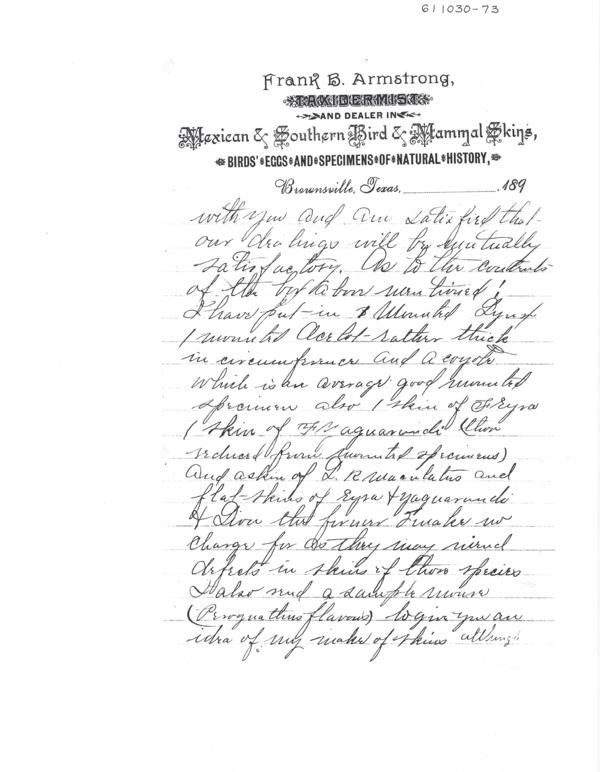 611030-73
Frank B. Armstrong,
TAXIDERMIST
AND DEALER IN
Mexican & Southern Bird & Mammal Skins,
BIRDS' EGGS AND SPECIMENS OF NATURAL HISTORY,
Brownsville, Texas, 189
with you and am satisfied that
our dealings will be mutually
satisfactory. As to the contents
of the box above mentioned!
I have put in 1 Mounted Lynx
1 mounted Ocelot-rather thick
in circumference and a coyote
which is an average good mounted
specimen also 1 skin of F Eyra
1 skin of F Yaguarundi (then
reduced from mounted specimens)
and a skin of L. R maculatus and
flat-skins of Eyra & Yaguarundi
& Lion the former I make no
charge for as they may mend
defects in skins of those species
I also send a sample mouse
(Perognathus flavus) to give you an
idea of my make of skins although